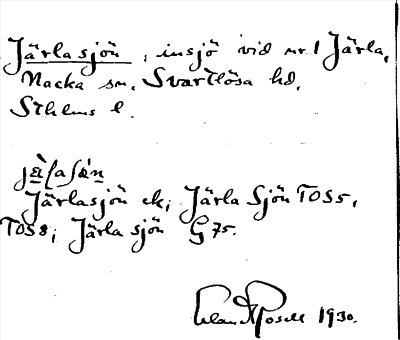 Järlasjön, insjö vid nr. 1 Järla,
Nacka sn. Svartlösa hd.
Sthlms l.
Järlasjön ek; Järla Sjön TOS5,
TOS8; Järla sjön G75.
1930.